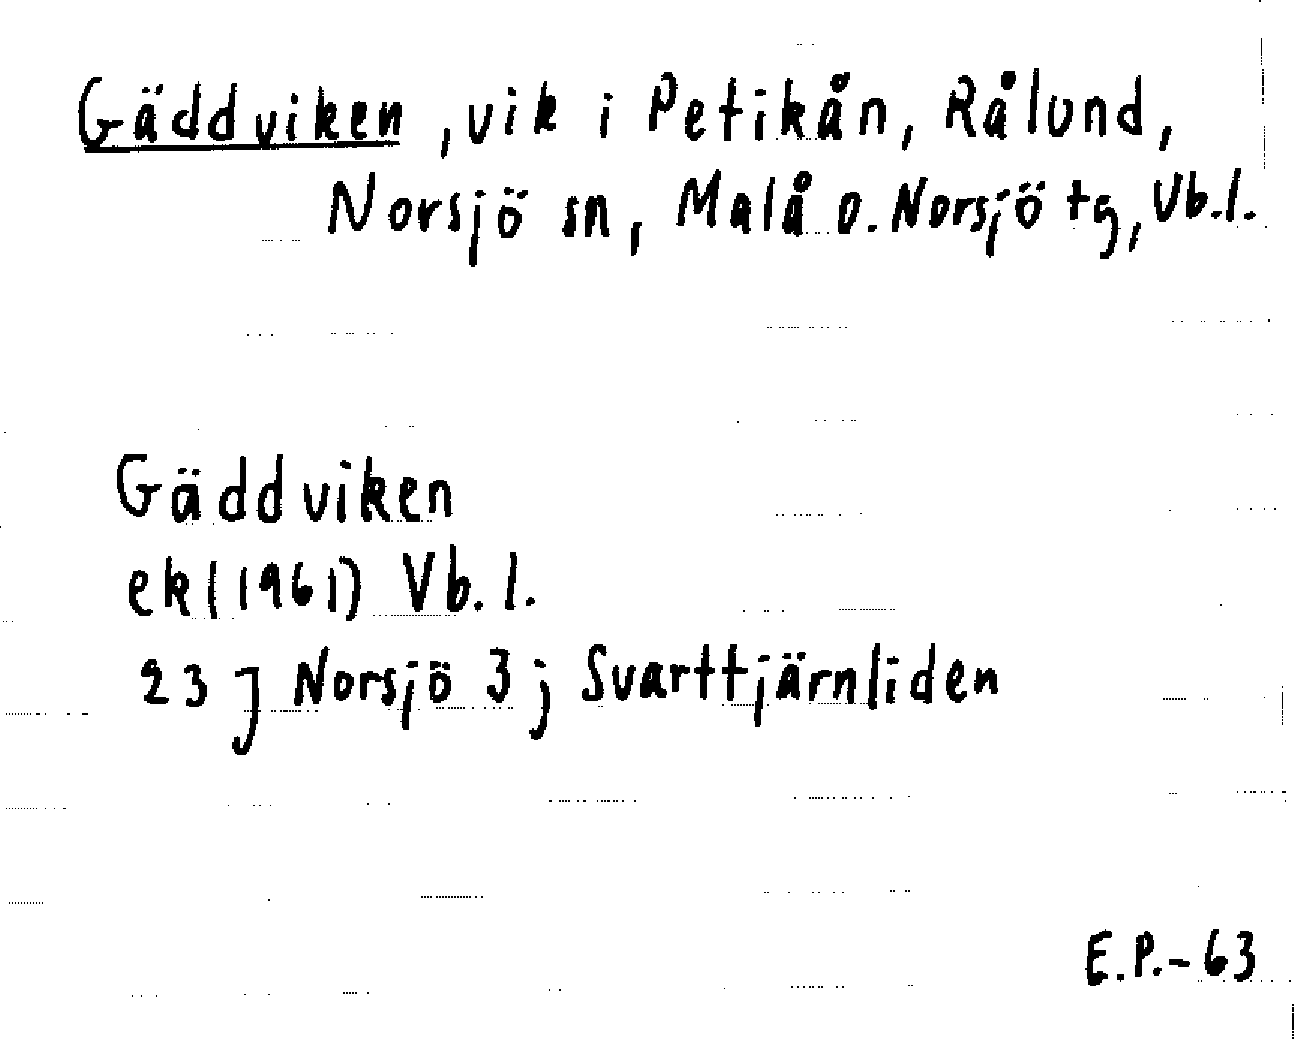 Gäddviken, vik i Petikån, Rålund,
Norsjö sn, Malå o. Norsjö tg, Vb.l.
Gäddviken
ek (1961) Vb.l.
23 J Norsjö 3 j Svarttjärnliden
E.P.-63